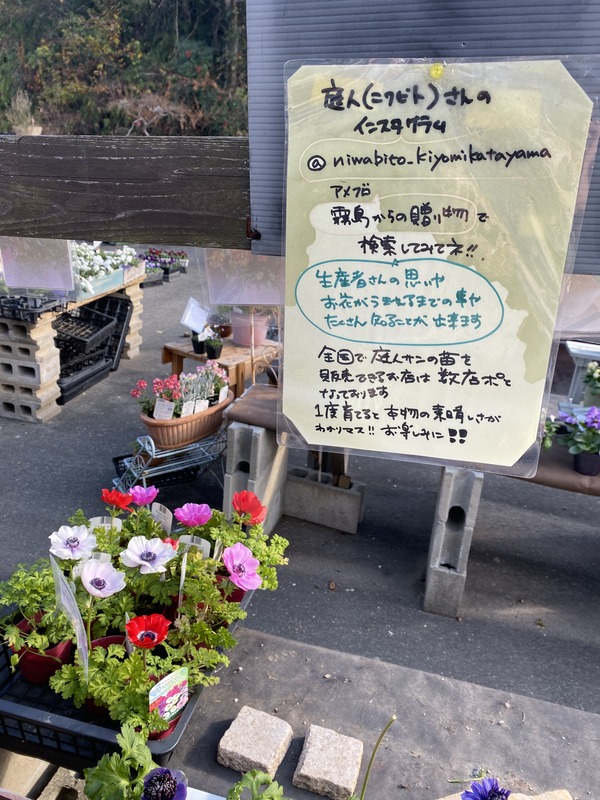 庭人(ニワビト)さんの
インスタグラム
@niwabito_kiyomikatayama
アメブロ
霧島からの贈り物で
検索してみてネ!!
生産者さんの思いや
お花がうまれるまでの事や
たくさん知ることが出来ます
全国で庭人サンの苗を
販売できるお店は数店ポと
なっております
1度育てると本物の素晴しさが
わかりマス!!お楽しみに!!